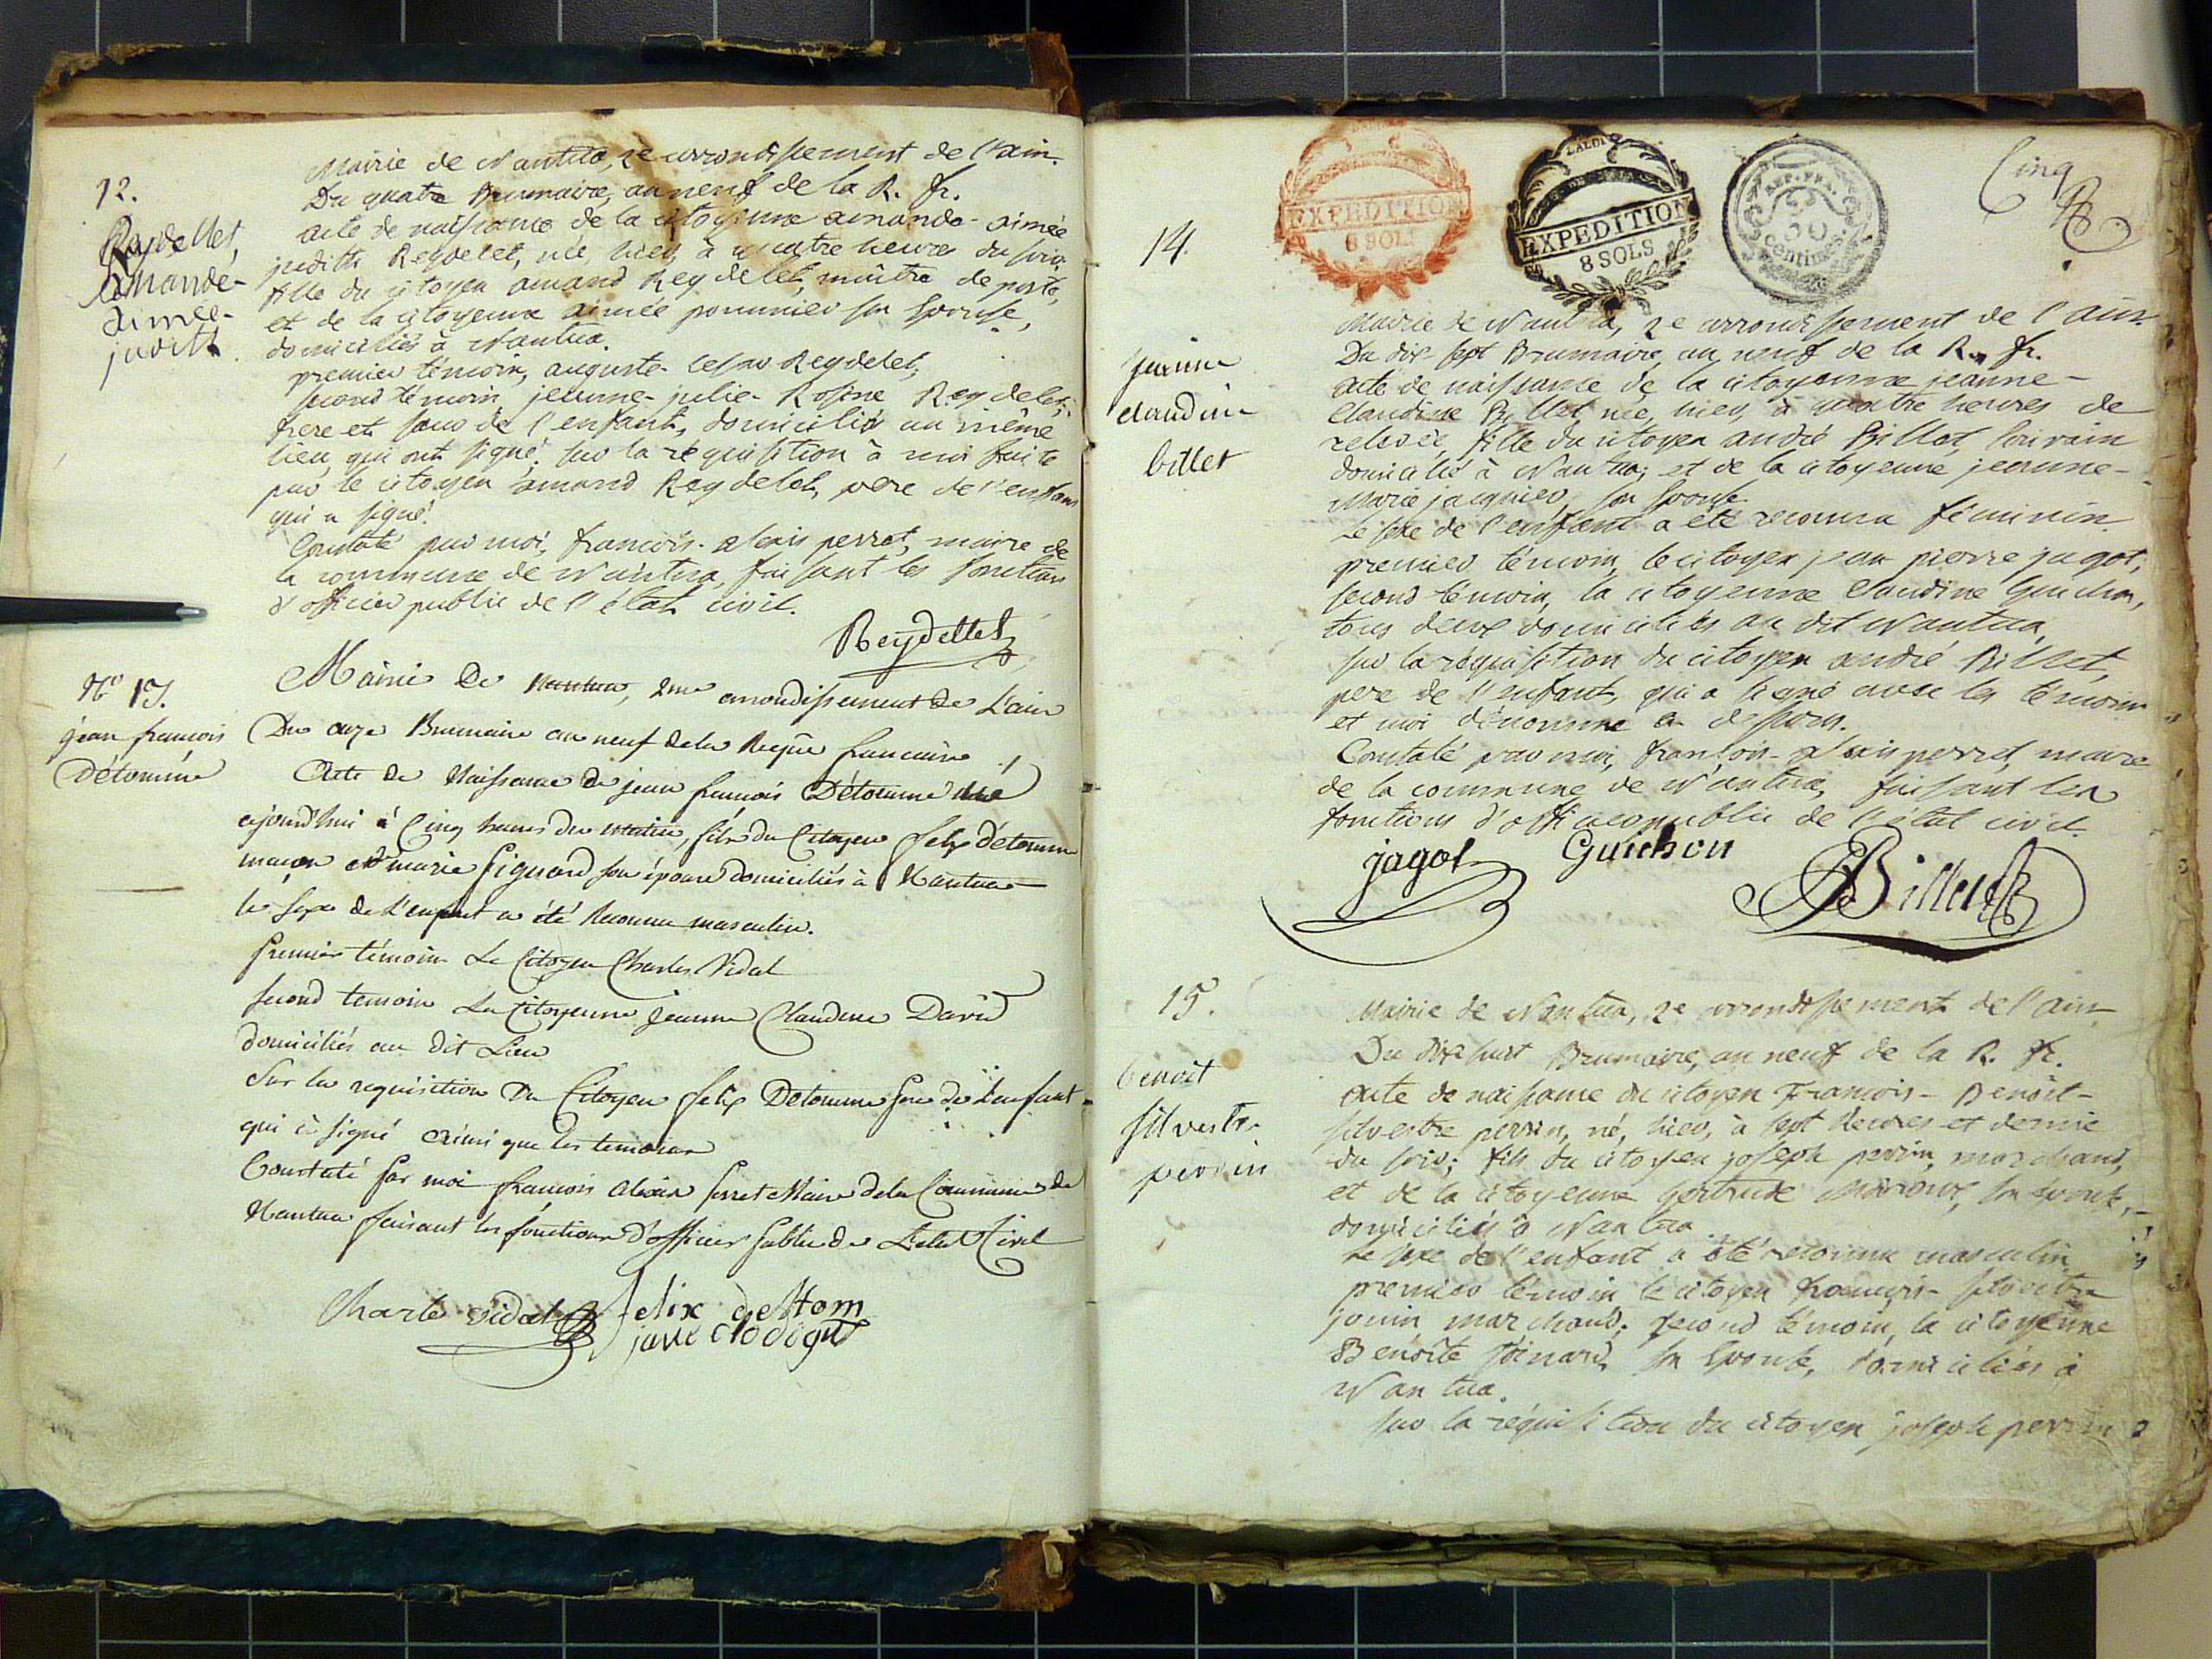 12.
Reydellet,
Amande-
Aimée-
judith.
Mairie de Nantua, 2e arrondissement de l'ain.
Du quatre Brumaire, an neuf de la R. fr.
acte de naissance de la citoyenne amande-aimée
judith Reydelet, née, hier, à quatre heures du soir,
fille du citoyen amand Reydelet, maître de poste,
et de la citoyenne aimée pommier son épouse,
domiciliés à Nantua.
premier témoin, auguste- Reydelet,
second témoin jeanne-julie-Rosine Reydelet,
frère et sœur de l'enfant, domiciliés au même
lieu, qui ont signé. sur la réquisition à moi faite
par le citoyen amand Reydelet, père de l'enfant
qui a signé.
Constaté par moi, françois-alexis perret, maire de
la commune de Nantua, faisant les fonctions
d'officier public de l'état civil.
Reydellet
No 13.
jean francois
Détomme
Mairie De Nantua, 2me arrondissement De L'ain
Du onze Brumaire an neuf dela Repue francaise
Acte De Naissance De jean francois Détomme né
ajourd'hui à Cinq heures du matin, fils du Citoyen felix détomme
maçon et marie Signard son épouse domiciliés à Nantua
le sexe de l'enfant a été Reconnu masculin.
Premier témoin Le Citoyen Charles Vidal
second temoin La Citoyenne jeanne Claudine David
domiciliés au dit Lieu
Sur la requisition Du Citoyen felix Detomme pere de L'enfant
qui à signé ainsi que les temoins
Constaté par moi françois alexis perret Maire dela Commune de
Nantua faisant les fonctions d'officier public de L'etat Civil
Charle vidal felix dettom
14.
jeanne
claudine
billet
EXPEDITION
8 SOLS
LA LOI
EXPEDITION
8 SOLS
REP. FRA.
50
centimes.
Cinq
Mairie de Nantua, 2e arrondissement de l'Ain
Du dix-sept Brumaire, an neuf de la R. fr.
acte de naissance de la citoyenne jeanne-
Claudine Billet, née, hier, à quatre heures de
relevée, fille du citoyen andré Billet, écrivain
domicilié à Nantua; et de la citoyenne jeanne-
Marie jacquier, son épouse.
Le sexe de l'enfant a été reconnu féminin.
premier témoin, le citoyen jean pierre jagot,
second témoin, la citoyenne Claudine Guichon,
tous deux domiciliés au dit Nantua,
sur la réquisition du citoyen andré Billet,
père de l'enfant, qui a signé avec les témoins
et moi dénommé ci dessous.
Constaté par moi, françois-alexis perret, maire
de la commune de Nantua, faisant les
fonctions d'officier public de l'état civil.
jagot Guichon Billet
15.
benoit
silvestre
perrin
Mairie de Nantua, 2e arrondissement de l'Ain
Du dix huit Brumaire, an neuf de la R. fr.
acte de naissance du citoyen François-Benoît-
silvestre perrin, né, hier, à sept heures et demie
du soir; fils du citoyen joseph perrin, marchand,
et de la citoyenne Gertrude son épouse,
domiciliés à Nantua.
Le sexe de l'enfant a été reconnu masculin
premier témoin le citoyen françois-silvestre
jouin marchand; second témoin, la citoyenne
Benoîte son épouse, domiciliés à
Nantua.
sur la réquisition du citoyen joseph perrin